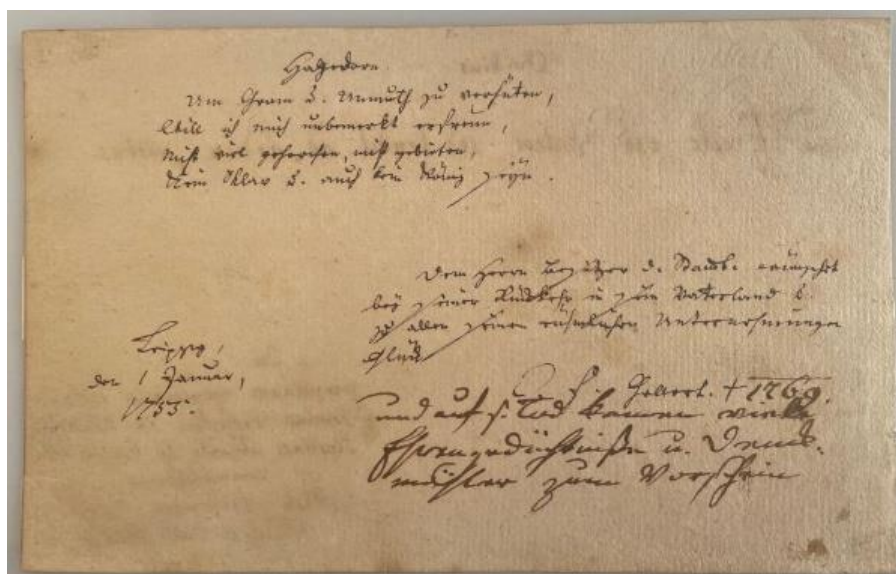 Hagedorn.
Um Gram u. Unmuth zu verhüten,
Will ich mich unbemerkt erfreun,
Nicht viel gehorchen, nicht gebieten,
Kein Sklav u. auch kein König seyn.
Dem Herrn Besitzer d. Stamb. wünschet
bey seiner Rückkehr in sein Vaterland u.
zu allen seinen rühmlichen Unternehmungen
Glück
Leipzig,
den 1 Januar,
1755.
Gellert. † 1769.
und auf s. Tod kamen viele
Ehrengedächtniße u. Denk-
mähler zum Vorschein